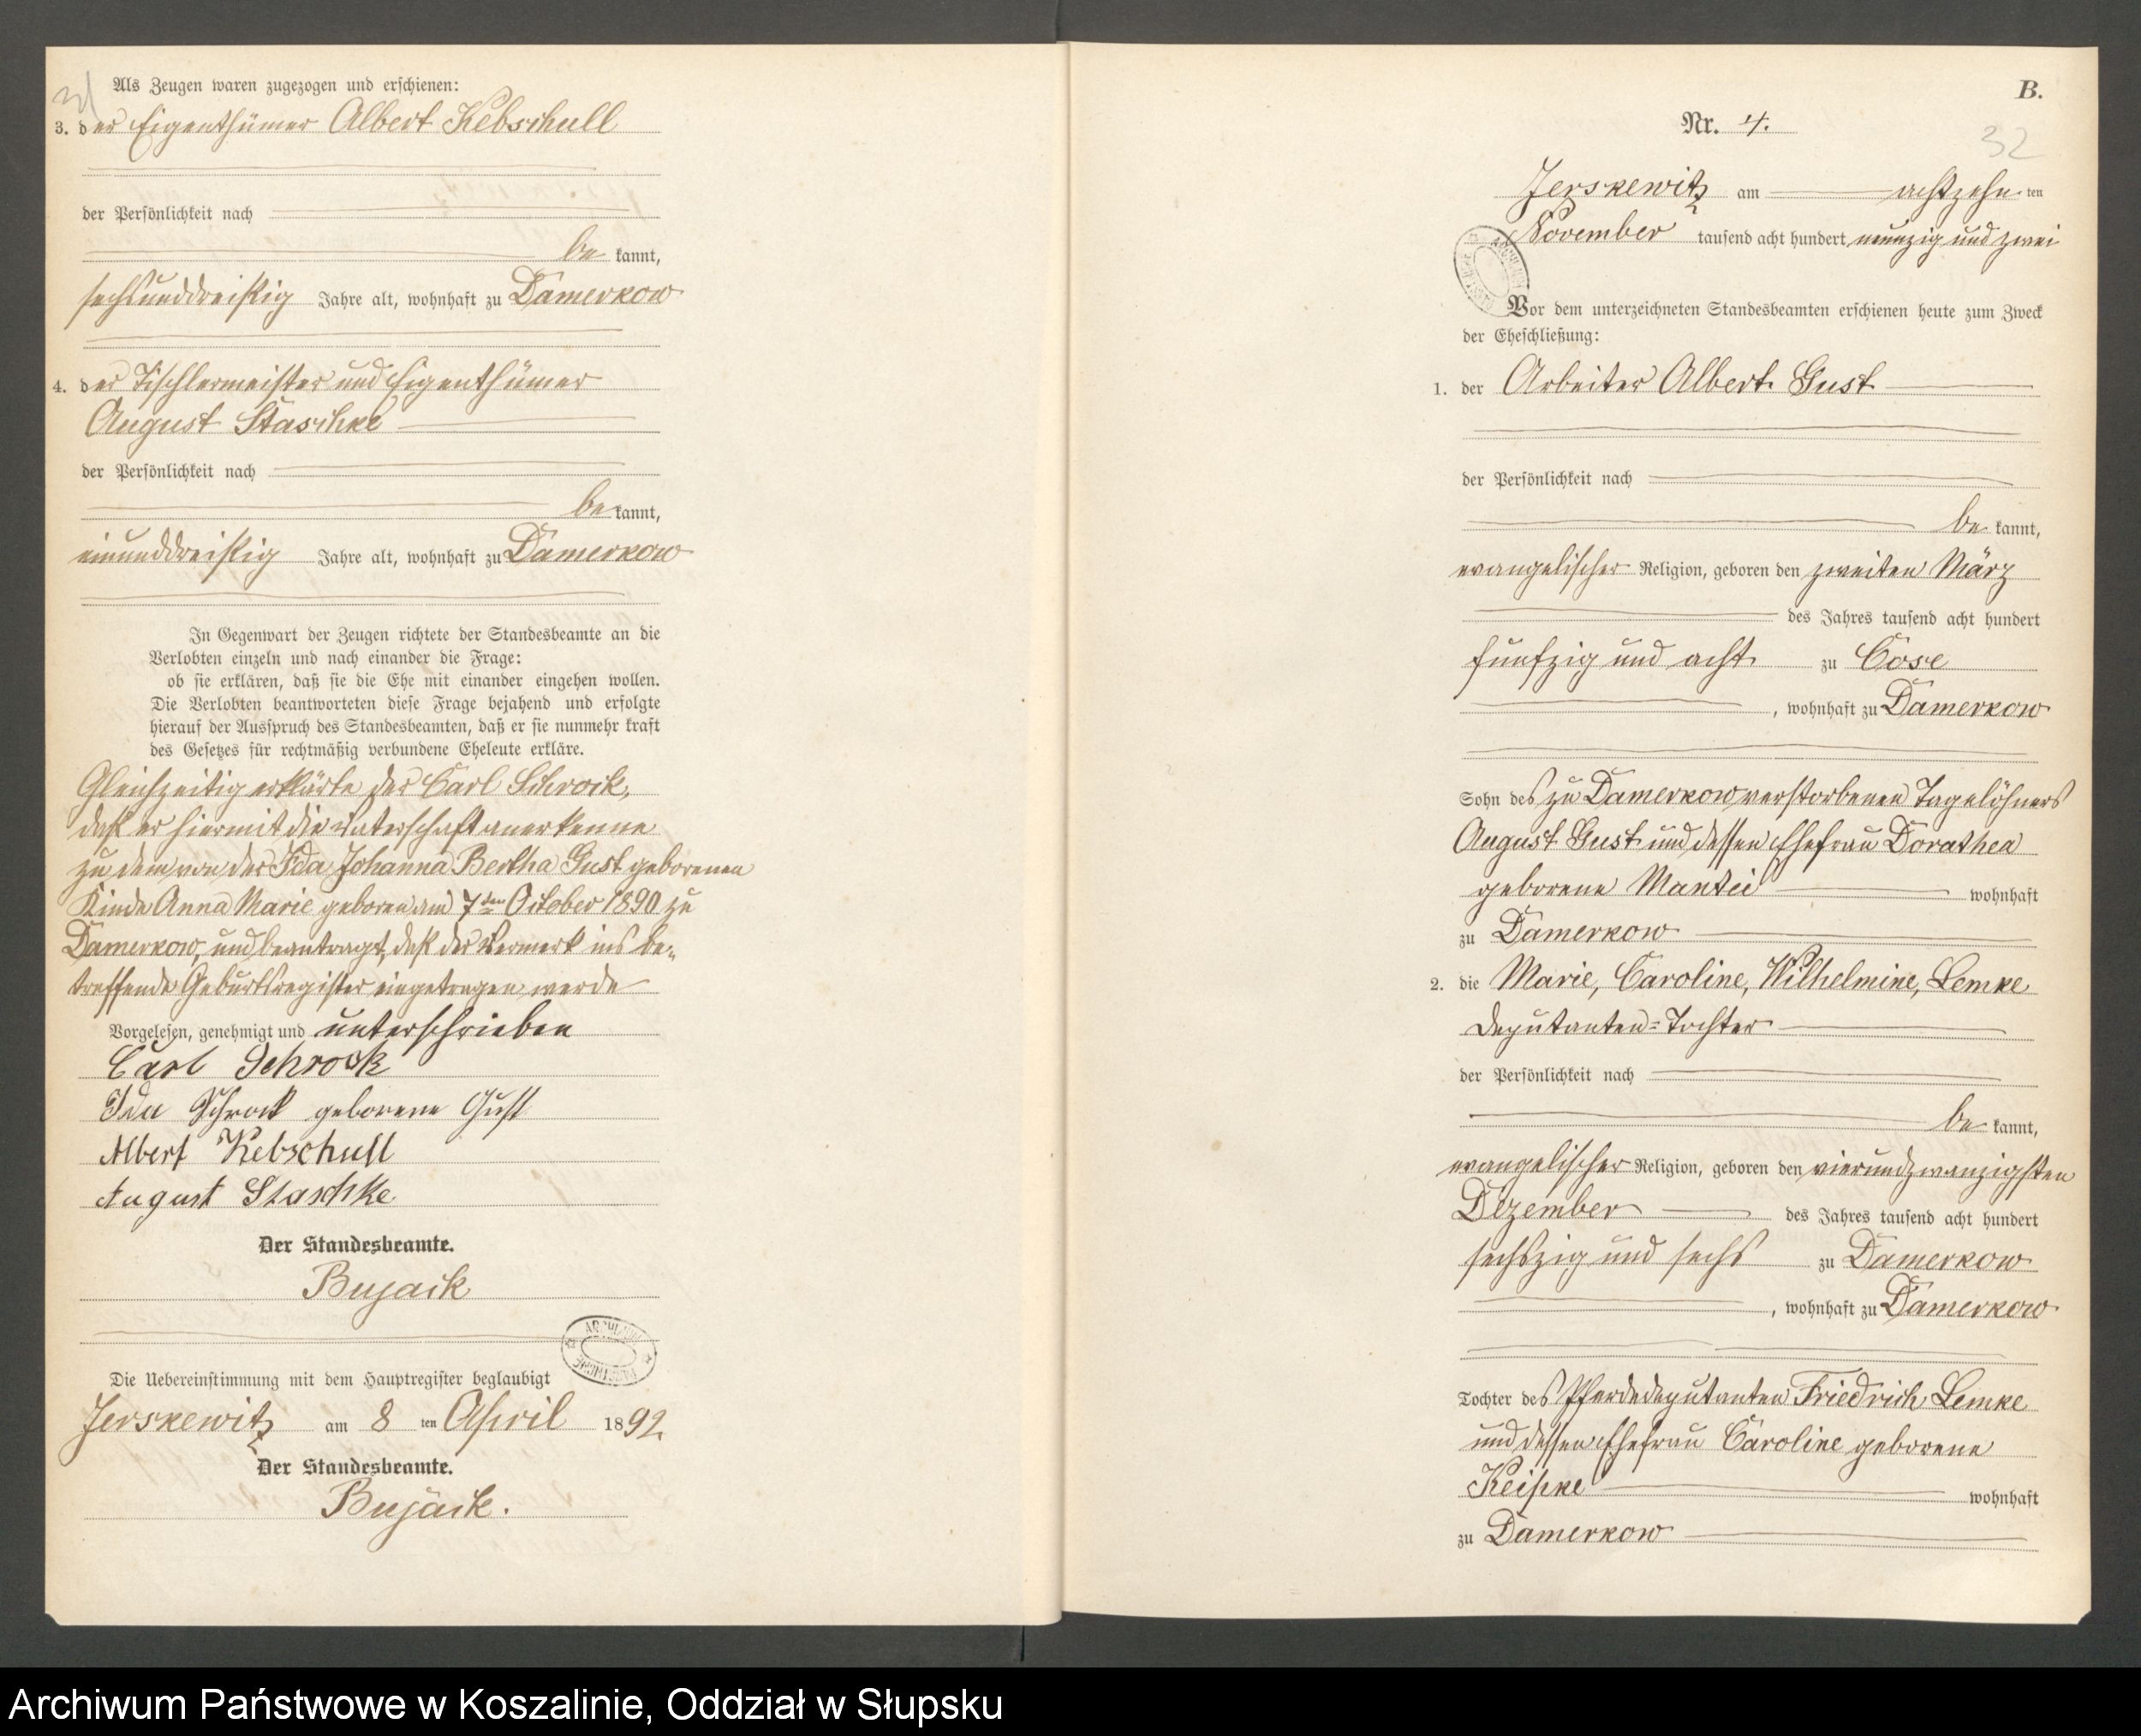 Als Zeugen waren zugezogen und erschienen:
3. der Eigenthümer Albert Kebschull
der Persönlichkeit nach
bekannt,
sechsunddreißig Jahre alt, wohnhaft zu Damerkow
4. der Tischlermeister und Eigenthümer
August Staschke
der Persönlichkeit nach
bekannt,
einunddreißig Jahre alt, wohnhaft zu Damerkow
In Gegenwart der Zeugen richtete der Standesbeamte an die
Verlobten einzeln und nach einander die Frage:
ob sie erklären, daß sie die Ehe mit einander eingehen wollen.
Die Verlobten beantworteten diese Frage bejahend und erfolgte
hierauf der Ausspruch des Standesbeamten, daß er sie nunmehr kraft
des Gesetzes für rechtmäßig verbundene Eheleute erkläre.
Gleichzeitig erklärte der Carl Schrock,
daß er hiermit die Vaterschaft anerkenne
zu dem von der Ida Johanna Bertha Gust geborenen
Kinde Anna Marie geboren am 7ten October 1890 zu
Damerkow, und beantragt, daß der Vermerk ins be-
treffende Geburtsregister eingetragen werde
Vorgelesen, genehmigt und unterschrieben
Carl Schrock
Ida Schrock geborene Gust
Albert Kebschull
August Staschke
Der Standesbeamte.
Bujack
Die Uebereinstimmung mit dem Hauptregister beglaubigt
Jerskewitz am 8 ten April 1892
Der Standesbeamte.
Bujack.
B.
Nr. 4.
32
Jerskewitz am achtzehnten
November tausend acht hundert neunzig und zwei
Vor dem unterzeichneten Standesbeamten erschienen heute zum Zweck
der Eheschließung:
1. der Arbeiter Albert Gust
der Persönlichkeit nach
bekannt,
evangelischer Religion, geboren den zweiten März
des Jahres tausend acht hundert
fünfzig und acht zu Cose
, wohnhaft zu Damerkow
Sohn des zu Damerkow verstorbenen Tagelöhners
August Gust und dessen Ehefrau Dorathea
geborene Mantei wohnhaft
zu Damerkow
2. die Marie, Caroline, Wilhelmine, Lemke
Deputanten-Tochter
der Persönlichkeit nach
bekannt,
evangelischer Religion, geboren den vierundzwanzigsten
Dezember des Jahres tausend acht hundert
sechszig und sechs zu Damerkow
, wohnhaft zu Damerkow
Tochter des Pferdedeputanten Friedrich Lemke
und dessen Ehefrau Caroline geborene
Keipke wohnhaft
zu Damerkow
Archiwum Państwowe w Koszalinie, Oddział w Słupsku